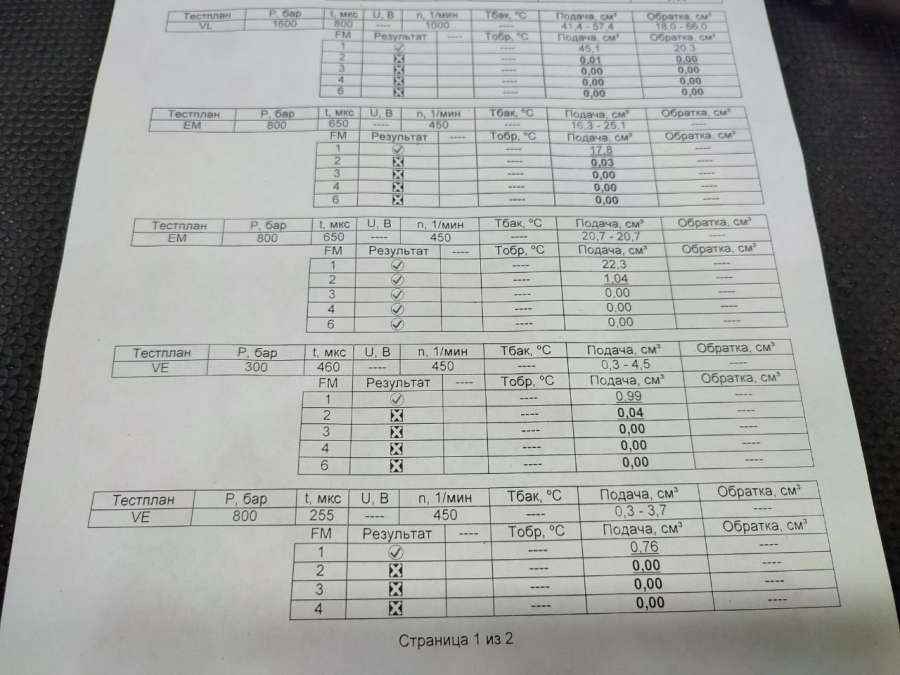 Тестплан P, бар t, мкс U, В n, 1/мин Тбак, ºС Подача, см³ Обратка, см³
VL 1600 800 ---- 1000 ---- 41,4 - 57,4 18,0 - 56,0
FM Результат ---- Тобр, ºС Подача, см³ Обратка, см³
1 ---- 45,1 20,3
2 ---- 0,01 0,00
3 ---- 0,00 0,00
4 ---- 0,00 0,00
6 ---- 0,00 0,00
Тестплан P, бар t, мкс U, В n, 1/мин Тбак, ºС Подача, см³ Обратка, см³
EM 800 650 ---- 450 ---- 16,3 - 25,1 ----
FM Результат ---- Тобр, ºС Подача, см³ Обратка, см³
1 ---- 17,8 ----
2 ---- 0,03 ----
3 ---- 0,00 ----
4 ---- 0,00 ----
6 ---- 0,00 ----
Тестплан P, бар t, мкс U, В n, 1/мин Тбак, ºС Подача, см³ Обратка, см³
EM 800 650 ---- 450 ---- 20,7 - 20,7 ----
FM Результат ---- Тобр, ºС Подача, см³ Обратка, см³
1 ---- 22,3 ----
2 ---- 1,04 ----
3 ---- 0,00 ----
4 ---- 0,00 ----
6 ---- 0,00 ----
Тестплан P, бар t, мкс U, В n, 1/мин Тбак, ºС Подача, см³ Обратка, см³
VE 300 460 ---- 450 ---- 0,3 - 4,5 ----
FM Результат ---- Тобр, ºС Подача, см³ Обратка, см³
1 ---- 0,99 ----
2 ---- 0,04 ----
3 ---- 0,00 ----
4 ---- 0,00 ----
6 ---- 0,00 ----
Тестплан P, бар t, мкс U, В n, 1/мин Тбак, ºС Подача, см³ Обратка, см³
VE 800 255 ---- 450 ---- 0,3 - 3,7 ----
FM Результат ---- Тобр, ºС Подача, см³ Обратка, см³
1 ---- 0,76 ----
2 ---- 0,00 ----
3 ---- 0,00 ----
4 ---- 0,00 ----
Страница 1 из 2